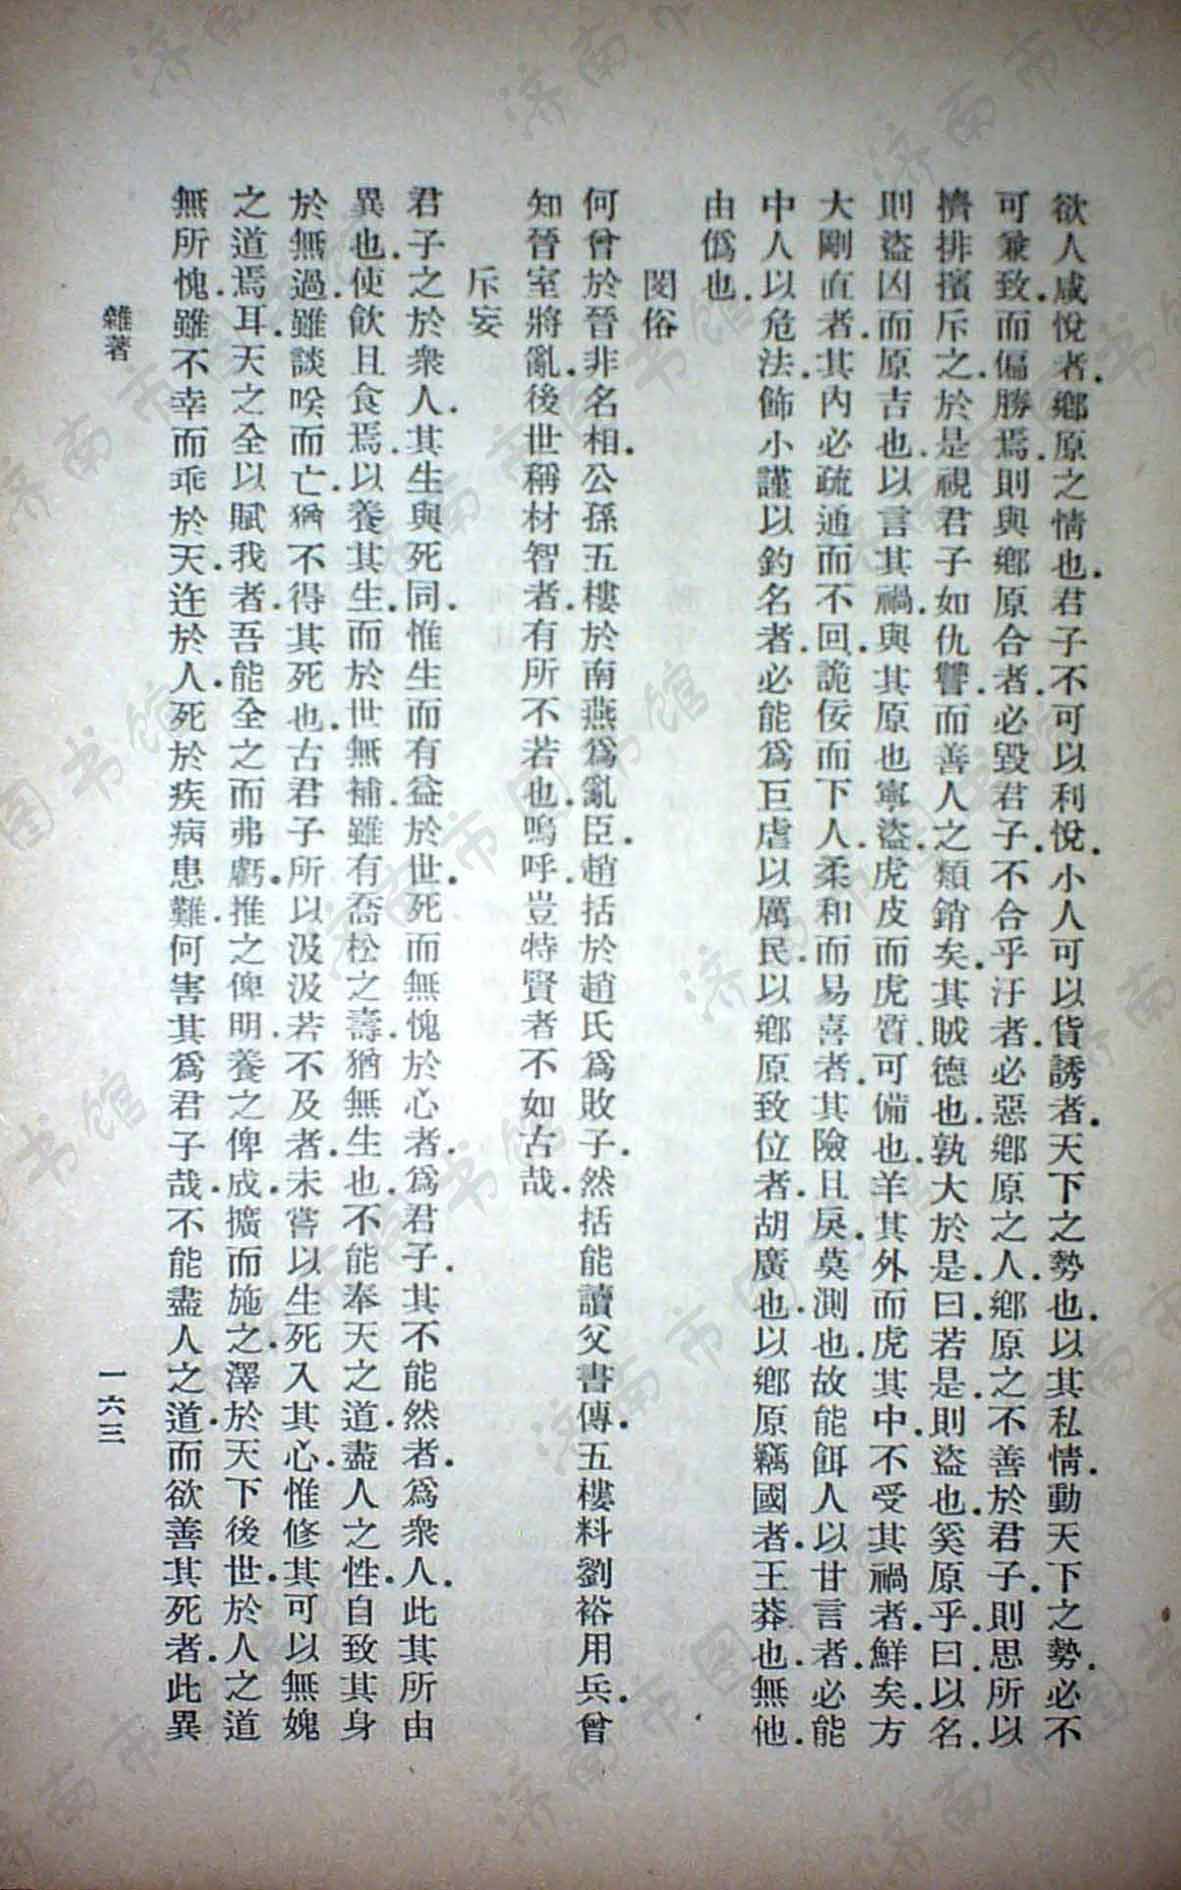 欲人咸悅者.鄉原之情也.君子不可以利悅.小人可以貨誘者.天下之勢也.以其私情.動天下之勢.必不
可兼致.而偏勝焉.則與鄉原合者.必毀君子.不合乎汙者.必惡鄉原之人.鄉原之不善於君子.則思所以
擠排擯斥之.於是視君子如仇讐.而善人之類銷矣.其賊德也.孰大於是.曰.若是.則盜也.奚原乎.曰.以名.
則盜凶而原吉也.以言其禍.與其原也寧盜.虎皮而虎質.可備也.羊其外而虎其中.不受其禍者.鮮矣.方
大剛直者.其內必疏通而不回.詭佞而下人.柔和而易喜者.其險且戾.莫測也.故能餌人以甘言者.必能
中人以危法.飾小謹以釣名者.必能爲巨虐以厲民.以鄉原致位者.胡廣也.以鄉原竊國者.王莽也.無他.
由僞也.
閔俗
何曾於晉非名相.公孫五樓於南燕爲亂臣.趙括於趙氏爲敗子.然括能讀父書傳.五樓料劉裕用兵.曾
知晉室將亂.後世稱材智者.有所不若也.嗚呼.豈特賢者不如古哉.
斥妄
君子之於衆人.其生與死同.惟生而有益於世.死而無愧於心者.爲君子.其不能然者.爲衆人.此其所由
異也.使飲且食焉.以養其生.而於世無補.雖有喬松之壽.猶無生也.不能奉天之道.盡人之性.自致其身
於無過.雖談咲而亡.猶不得其死也.古君子所以汲汲若不及者.未嘗以生死入其心.惟修其可以無媿
之道焉耳.天之全以賦我者.吾能全之而弗虧.推之俾明.養之俾成.擴而施之.澤於天下後世.於人之道
無所愧.雖不幸而乖於天.迕於人.死於疾病患難.何害其爲君子哉.不能盡人之道.而欲善其死者.此異
雜著
一六三
济南市图书馆